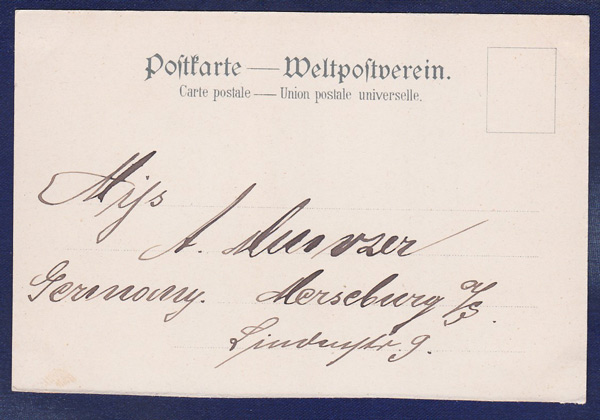 Postkarte — Weltpostverein.
Carte postale — Union postale universelle.
Miss
A.
Germany. Merseburg a/S.
Lindenstr. 9.